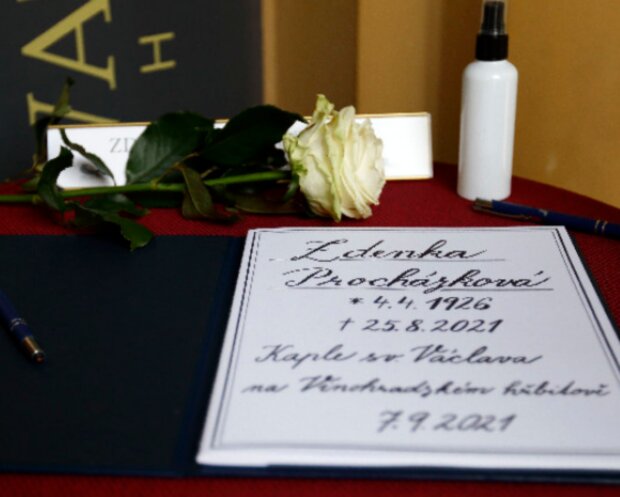 Zdenka
Procházková
* 4.4.1926
† 25.8.2021
Kaple sv. Václava
na Vinohradském hřbitově
7.9.2021